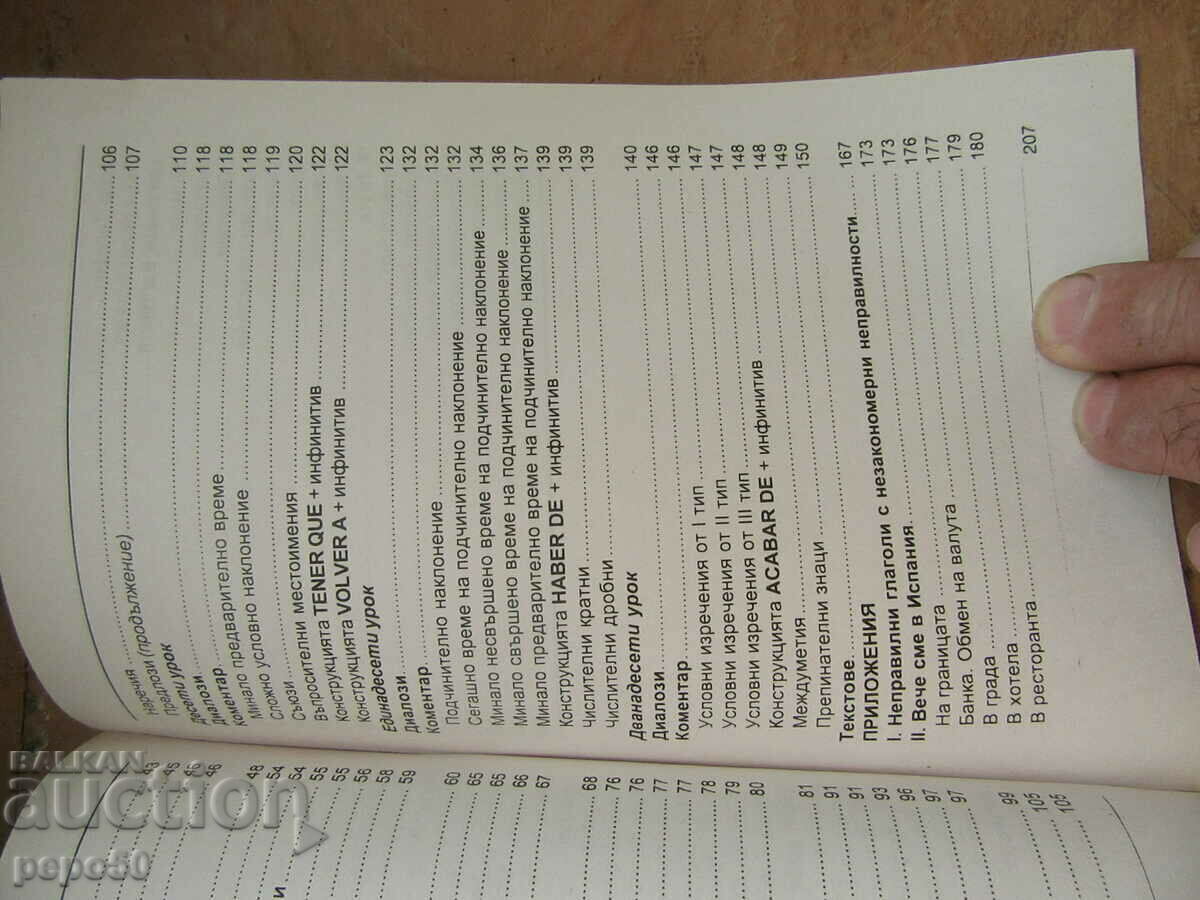 Наречия 106
Предлози (продължение) 107
Десети урок
Диалози 110
Коментар 118
Минало предварително време 118
Сложно условно наклонение 118
Съюзи 119
Въпросителни местоимения 120
Конструкцията TENER QUE + инфинитив 122
Конструкцията VOLVER A + инфинитив 122
Единадесети урок
Диалози 123
Коментар 132
Подчинително наклонение 132
Сегашно време на подчинително наклонение 132
Минало несвършено време на подчинително наклонение 134
Минало свършено време на подчинително наклонение 136
Минало предварително време на подчинително наклонение 137
Конструкцията HABER DE + инфинитив 139
Числителни кратни 139
Числителни дробни 139
Дванадесети урок
Диалози 140
Коментар 146
Условни изречения от I тип 146
Условни изречения от II тип 147
Условни изречения от III тип 147
Конструкцията ACABAR DE + инфинитив 148
Междуметия 148
Препинателни знаци 149
Текстове 150
ПРИЛОЖЕНИЯ
I. Неправилни глаголи с незакономерни неправилности 167
II. Вече сме в Испания 173
На границата 173
Банка. Обмен на валута 176
В града 177
В хотела 179
В ресторанта 180
207
43
45
46
46
48
54
и 54
55
55
56
58
59
60
65
65
66
67
68
76
76
77
77
78
79
80
81
91
91
93
96
97
97
99
105
105
BALKAN
auction
pepo50